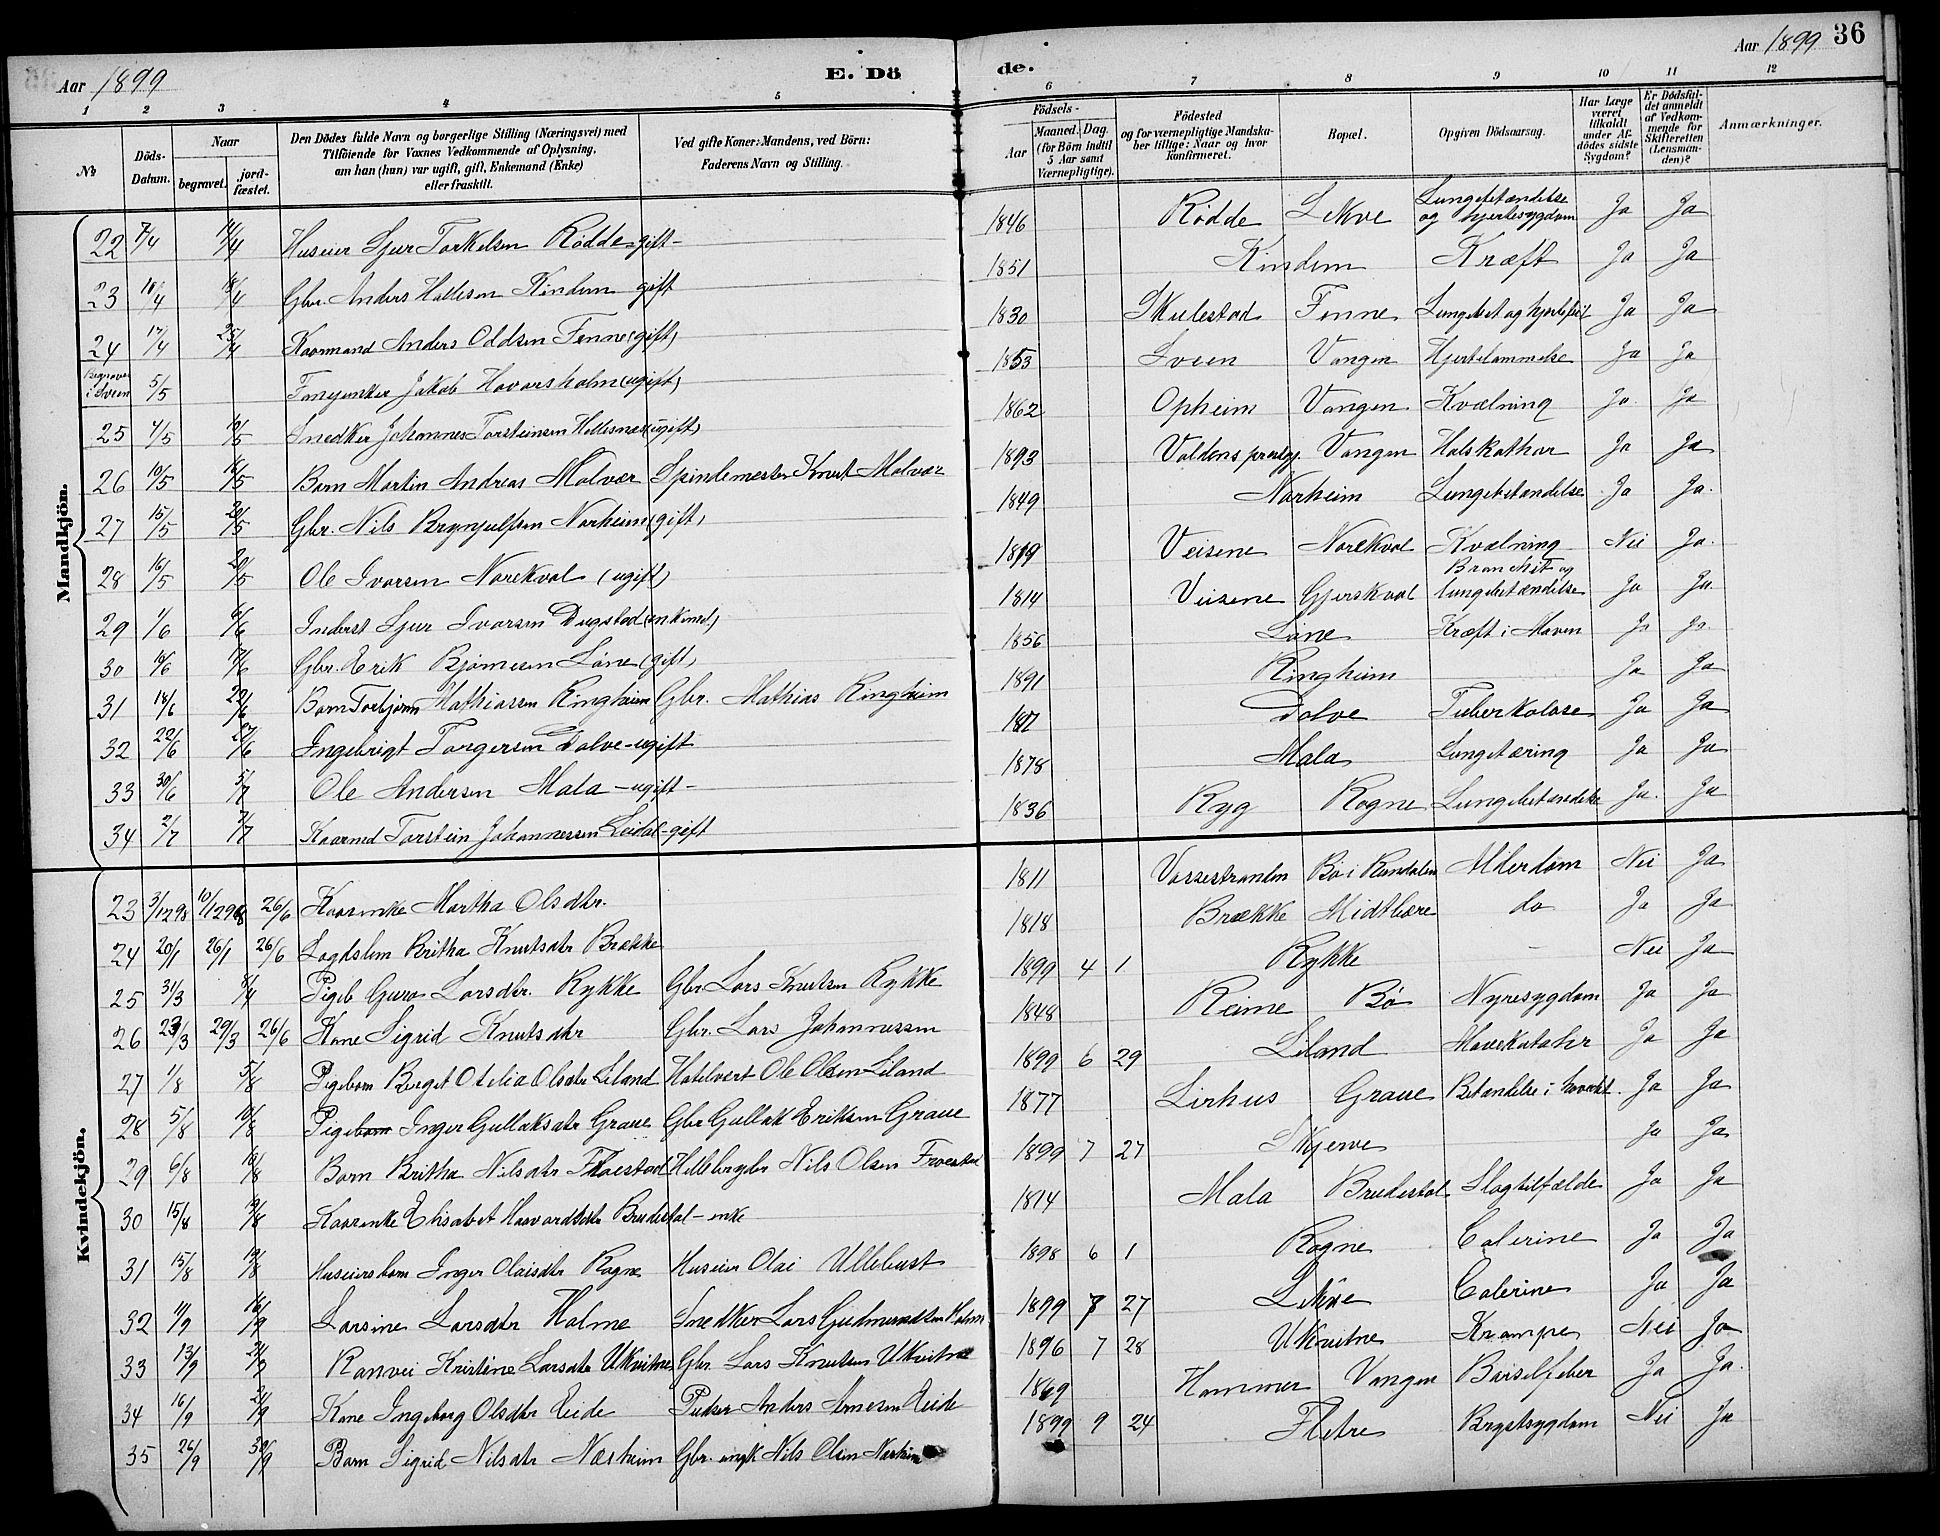 36
Aar 1899 E. Dö
de. Aar 1899
1 2 3 4 5
6 7 8 9 10 11 12
No
Döds-Datum.
Naar
begravet.
jord-fæstet.
Den Dödes fulde Navn og borgerlige Stilling (Næringsvei) med
Tilföiende for Voxnes Vedkommende af Oplysning,
om han (hun) var ugift, gift, Enkemand (Enke)
eller fraskilt.
Ved gifte Koner: Mandens, ved Börn:
Faderens Navn og Stilling.
Födsels-
Aar
Maaned. Dag.
(for Börn indtil
5 Aar samt
Værnepligtige).
Födested
og for værnepligtige Mandska-
ber tillige: Naar og hvor
konfirmeret.
Bopæl.
Opgiven Dödsaarsag.
Har Læge
været
tilkaldt
under Af-
dödes sidste
Sygdom?
Er Dödsfal-
det anmeldt
af Vedkom-
mende for
Skifteretten
(Lensman-
den)?
Anmærkninger.
Mandkjön.
22 7/4 14/4 Huseier Sjur Torkelsen Rödde gift- 1846 Rödde Lekve Lungebetændelse og hjertesygdom Ja Ja
23 10/4 18/4 Gbr. Anders Hallesen Kindem gift 1851 Kindem Kræft Ja Ja
24 17/4 25/4 Kaarmand Anders Oddsen Fenne (gift) 1830 Skulestad Fenne Lungebet og hjertefeil Ja Ja
Begravet i Sveen 5/5 Jakob Havarsholm (ugift) 1853 Sveen Vangen Hjertelammelse Ja Ja
25 4/5 10/5 Snedker Johannes Torsteinsen Hellesnæs (ugift) 1862 Opheim Vangen Kvælning Ja Ja
26 10/5 16/5 Barn Martin Andreas Malvær Spindemester Knut Malvær 1893 Valdens præstgj. Vangen Halskathar Ja Ja
27 15/5 20/5 Gbr. Nils Brynjulfsen Narheim (gift) 1849 Narheim Lungebetændelse Ja Ja.
28 16/5 20/5 Ole Ivarsen Norekval (ugift) 1819 Veisene Norekval Kvælning Nei Ja.
29 1/6 6/6 Inderst Sjur Ivarsen Dugstad (enkemd) 1814 Veisene Gjerskval Bronchit og lungebetændelse Ja Ja.
30 10/6 17/6 Gbr. Erik Bjørnesen Löne (gift) 1856 Löne Kræft i Maven Ja Ja.
31 18/6 22/6 Barn Torbjørn Mathiassen Ringheim Gbr. Mathias Ringheim 1891 Ringheim Ja Ja
32 22/6 27/6 Ingebrigt Torgersen Dolve - ugift Dolve Tuberkolose Ja Ja
33 30/6 5/7 Ole Andersen Mala - ugift - 1878 Mala Lungetæring Ja Ja
34 2/7 7/7 Kaarmd Torstein Johannessen Leidal - gift 1836 Ryg Rogne Lungebetændelse Ja. Ja
Kvindekjön.
23 3/12 98 10/12 98 26/6 Kaarenke Martha Olsdtr. 1811 Vossestranden Bö i Rundalen Alderdom Nei Ja
24 20/1 26/1 26/6 Lægdslem Britha Knutsdtr Brække 1818 Brække Midtbære do Ja Ja
25 31/3 8/4 Pigeb Guro Larsdtr. Rykke Gbr Lars Knutsen Rykke 1899 4 1 Rykke - Nei Ja
26 23/3 29/3 26/6 Kone Sigrid Knutsdtr Gbr. Lars Johannessen 1848 Reime Bö Nyresygdom Ja Ja
27 1/8 5/8 Pigebarn Berget Otilia Olsdtr Liland Hotelvert Ole Olsen Liland 1899 6 29 Liland Mavekatahr Ja Ja
28 5/8 10/8 Pigebarn Inger Gullaksdtr Graue Gbr Gullak Eriksen Graue 1877 Lirhus Graue Betændelse i hovedet. Ja Ja
29 6/8 10/8 Barn Britha Nilsdtr Froestad Nils Olsen Froestad 1899 7 27 Skjerve Ja Ja
30 15/8 19/8 Kaarenke Elisabet Haavardsdtr Brudestol - enke 1814 Mala Brudestol Slagtilfælde Ja Ja
31 15/8 19/8 Huseiersbarn Inger Olaisdtr Rogne Huseier Olai Ullebust 1898 6 1 Rogne Colerine Ja Ja
32 11/9 16/9 Larsine Larsdtr Holme Snedker Lars Gudmundsen Holm 1899 7 27 Lekve Colerine Ja Ja
33 13/9 21/9 Ranvei Kristine Larsdtr Ukvitne Gbr. Lars Knutsen Ukvitne 1896 7 28 Ukvitne Krampe Nei Ja
34 16/9 21/9 Kone Ingeborg Olsdtr Eide Pudser Anders Arnesen Eide 1869 Hammer Vangen Barselfeber Ja Ja.
35 26/9 30/9 Barn Sigrid Nilsdtr Næsheim Gbr. Nils Olsen Næsheim 1899 9 24 Fletre Brystsygdom Nei Ja